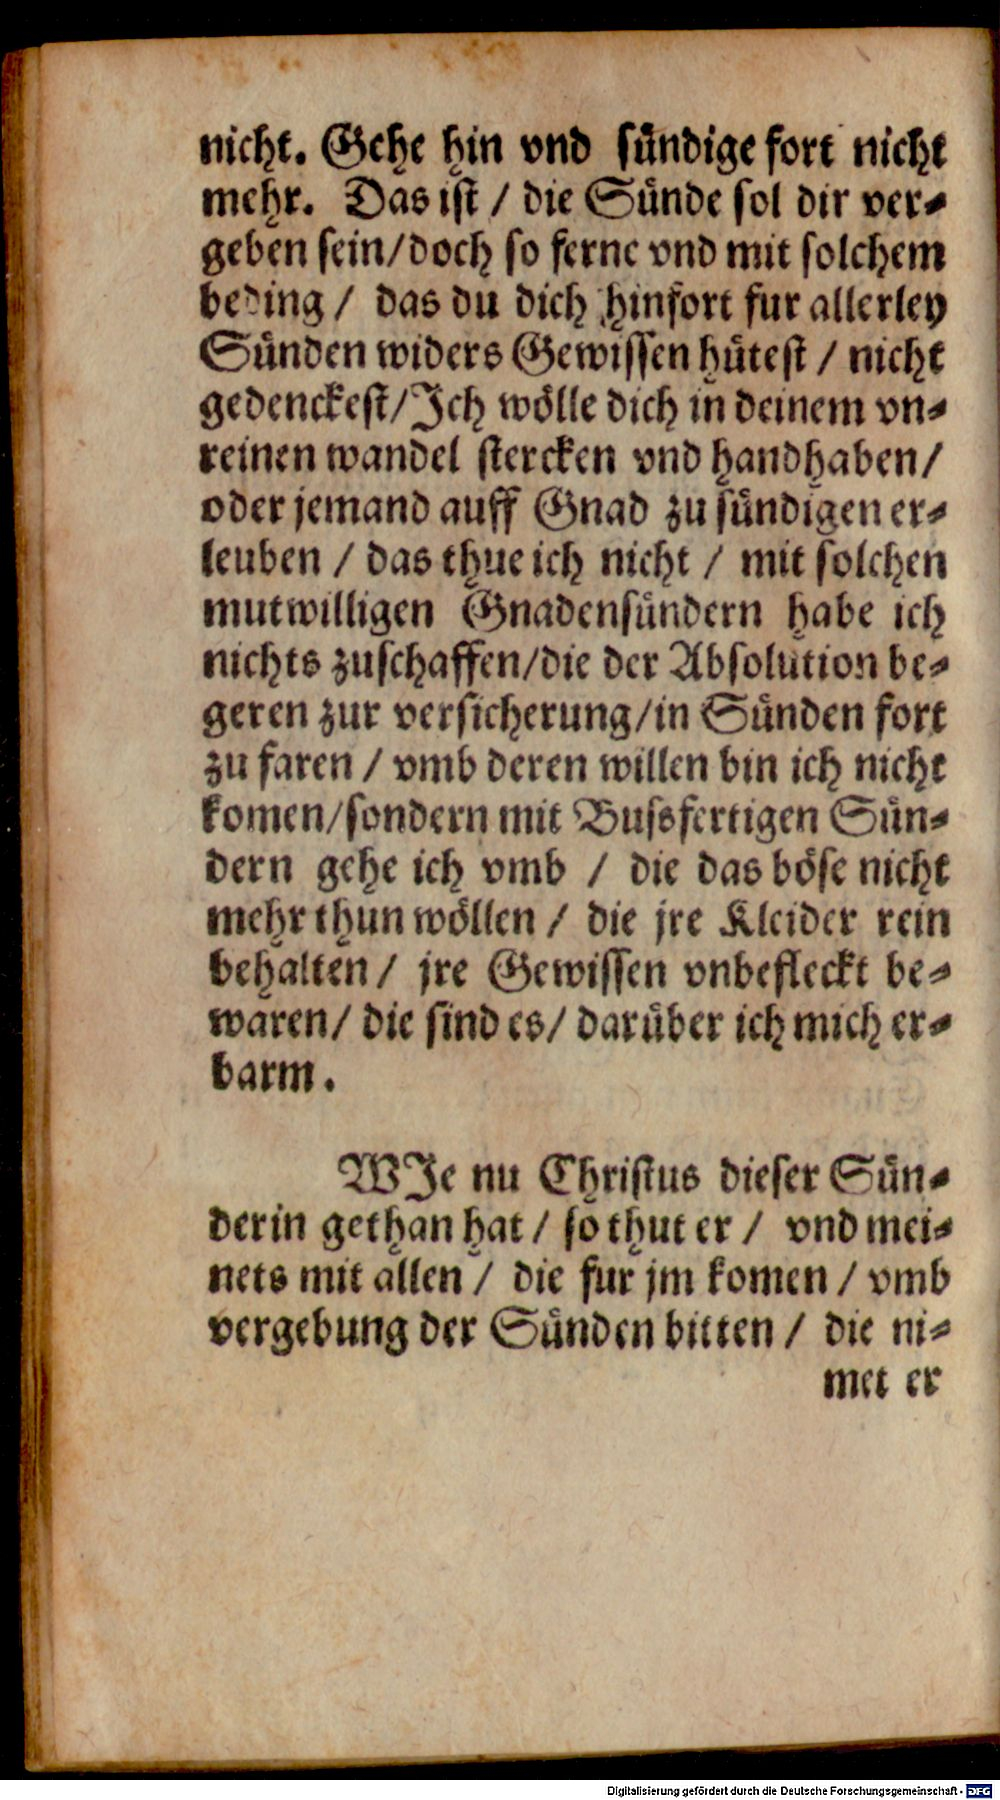 nicht. Gehe hin vnd sündige fort nicht
mehr. Das ist / die Sünde sol dir ver-
geben sein/doch so ferne vnd mit solchem
beding / das du dich hinfort fur allerley
Sünden widers Gewissen hütest / nicht
gedenckest/Jch wölle dich in deinem vn-
reinen wandel stercken vnd handhaben/
oder jemand auff Gnad zu sündigen er-
leuben / das thue ich nicht / mit solchen
mutwilligen Gnadensündern habe ich
nichts zuschaffen/die der Absolution be-
geren zur versicherung/in Sünden fort
zu faren / vmb deren willen bin ich nicht
komen/sondern mit Bussfertigen Sün-
dern gehe ich vmb / die das böse nicht
mehr thun wöllen / die jre Kleider rein
behalten / jre Gewissen vnbefleckt be-
waren/ die sind es/ darüber ich mich er-
barm.
WJe nu Christus dieser Sün-
derin gethan hat / so thut er / vnd mei-
nets mit allen / die fur jm komen / vmb
vergebung der Sünden bitten / die ni-
met er
Digitalisierung gefördert durch die Deutsche Forschungsgemeinschaft - DFG